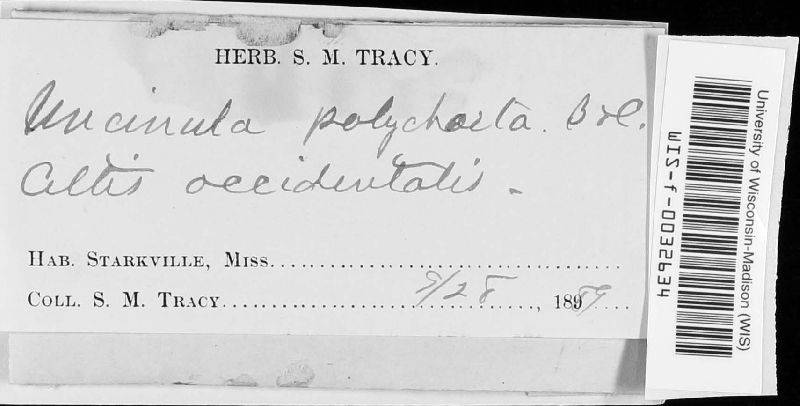 HERB. S. M. TRACY.
Uncinula polychaeta. B &C.
Celtis occidentalis.
HAB. STARKVILLE, MISS.
COLL. S. M. TRACY 9/28, 1889
University of Wisconsin-Madison (WIS)
WIS-f-0032634